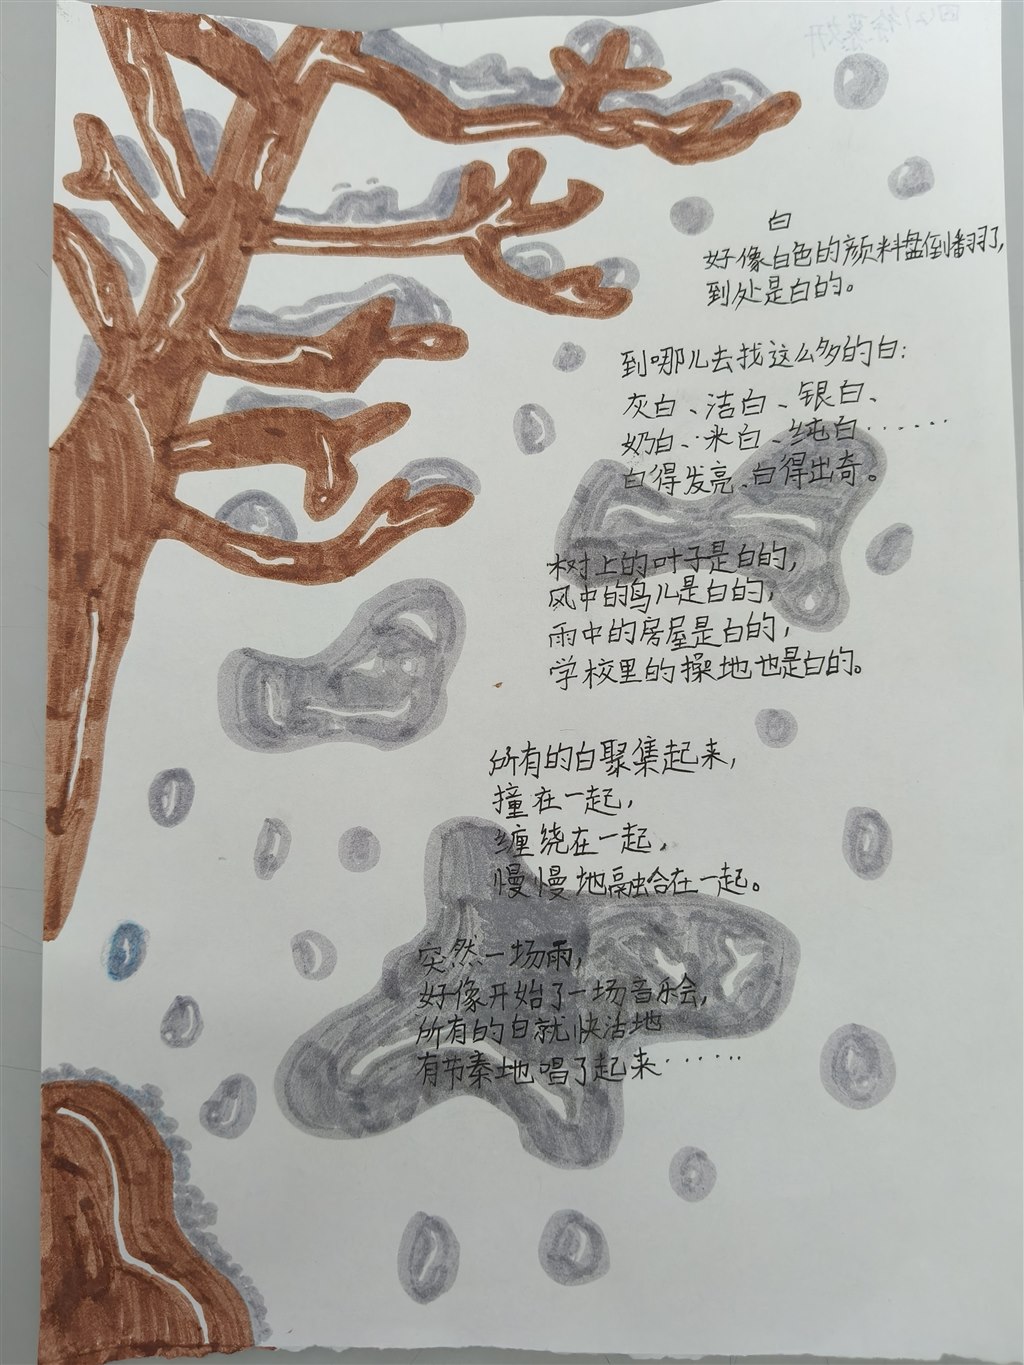 白
好像白色的颜料盘倒翻了,
到处是白的。
到哪儿去找这么多的白:
灰白、洁白、银白、
奶白、米白、纯白······
白得发亮、白得出奇。
树上的叶子是白的,
风中的鸟儿是白的,
雨中的房屋是白的,
学校里的操地也是白的。
所有的白聚集起来,
撞在一起,
缠绕在一起,
慢慢地融合在一起。
突然一场雨,
好像开始了一场音乐会,
所有的白就快活地
有节奏地唱了起来······